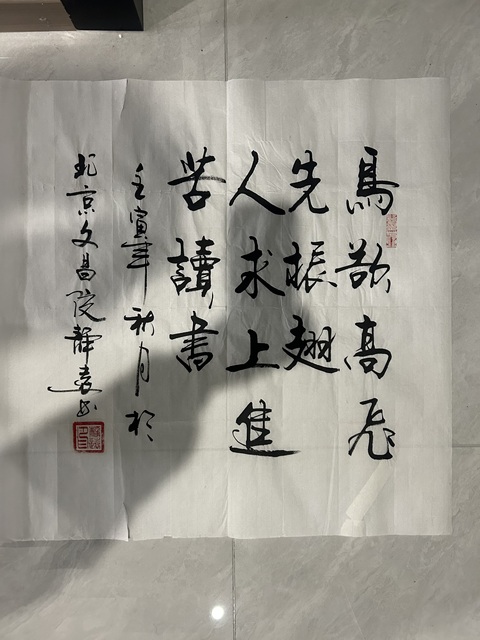 鳥欲高飛
先振翅
人求上進
苦讀書
壬寅年秋月於
北京文昌院靜遠书